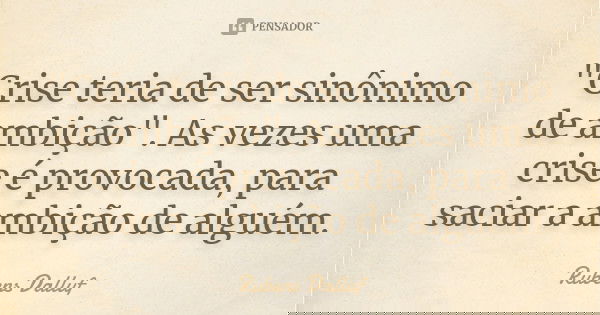 PENSADOR
"Crise teria de ser sinônimo
de ambição". As vezes uma
crise é provocada, para
saciar a ambição de alguém.
Rubens Dalluf